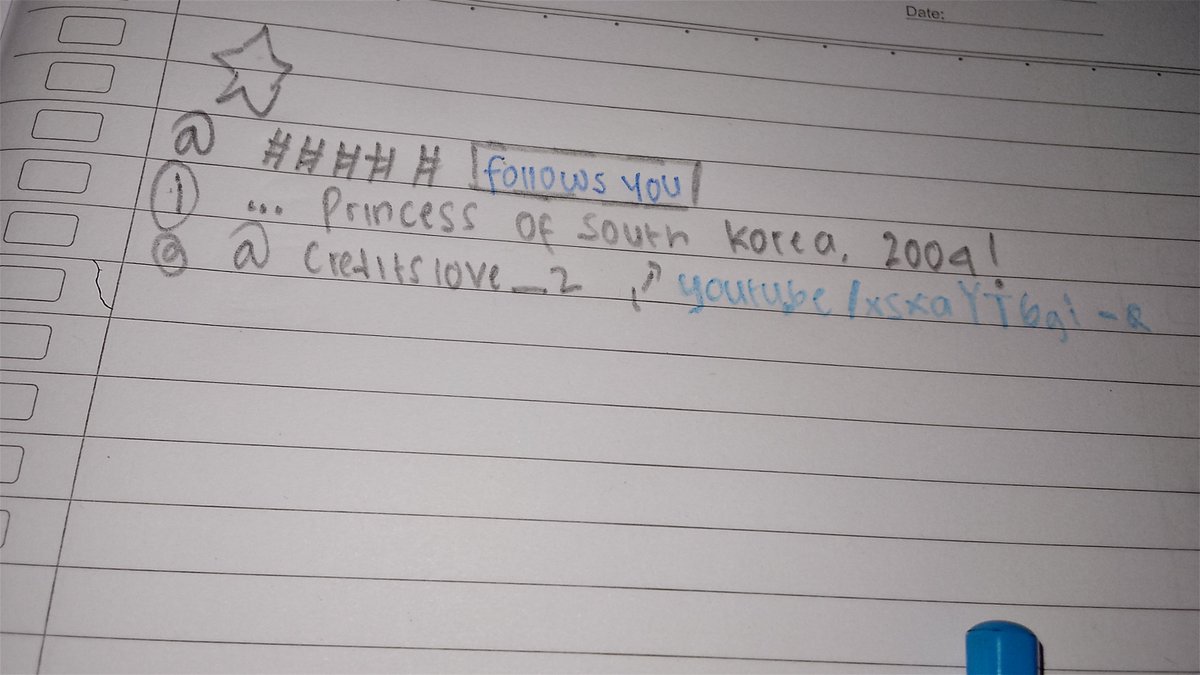 Date:
@ ##### follows you
① ... Princess of South Korea, 2004!
@ @ Creditslove_2 , ↗ youtube/xsxaYT6gi-Q